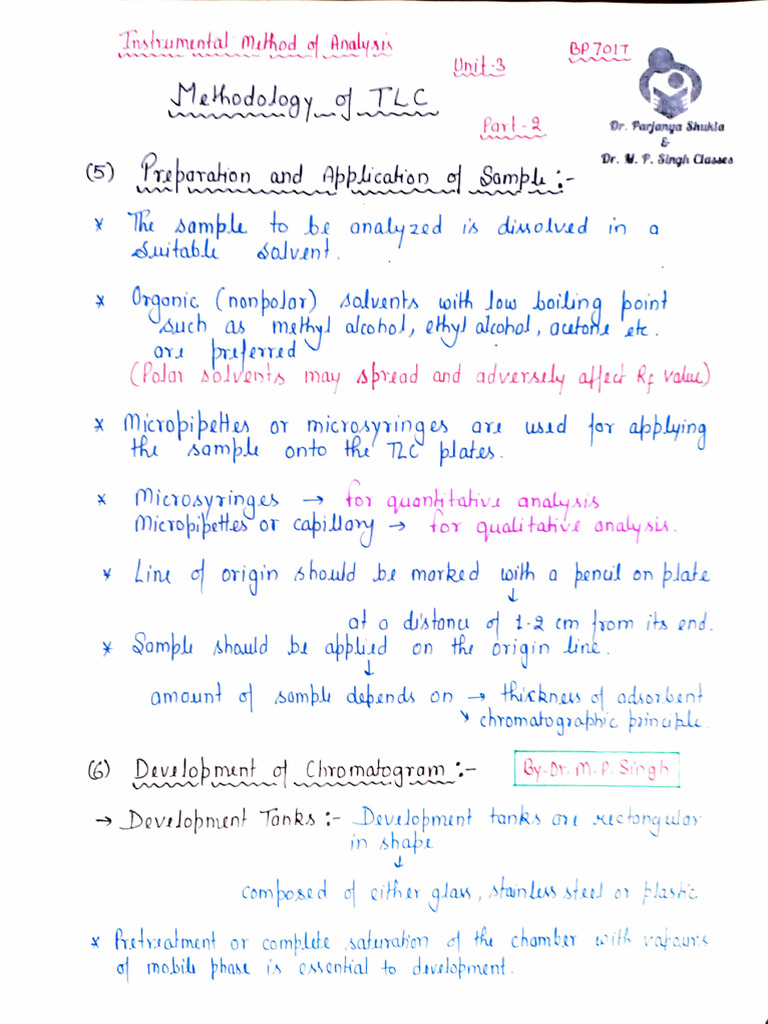 Instrumental Method of Analysis
BP701T
Unit-3
Methodology of TLC
Part-2
Dr. Parjanya Shukla
&
Dr. M. P. Singh Classes
(5) Preparation and Application of Sample :-
* The sample to be analyzed is dissolved in a
suitable solvent.
* Organic (nonpolar) solvents with low boiling point
such as methyl alcohol, ethyl alcohol, acetone etc.
are preferred
(Polar solvents may spread and adversely affect Rf value)
* Micropipettes or microsyringes are used for applying
the sample onto the TLC plates.
* Microsyringes → for quantitative analysis
Micropipettes or capillary → for qualitative analysis.
* Line of origin should be marked with a pencil on plate
↓
at a distance of 1-2 cm from its end.
* Sample should be applied on the origin line.
↓
amount of sample depends on → thickness of adsorbent
↘ chromatographic principle.
(6) Development of Chromatogram :-
By-Dr. M. P. Singh
→ Development Tanks :- Development tanks are rectangular
in shape
↓
composed of either glass, stainless steel or plastic
* Pretreatment or complete saturation of the chamber with vapours
of mobile phase is essential to development.